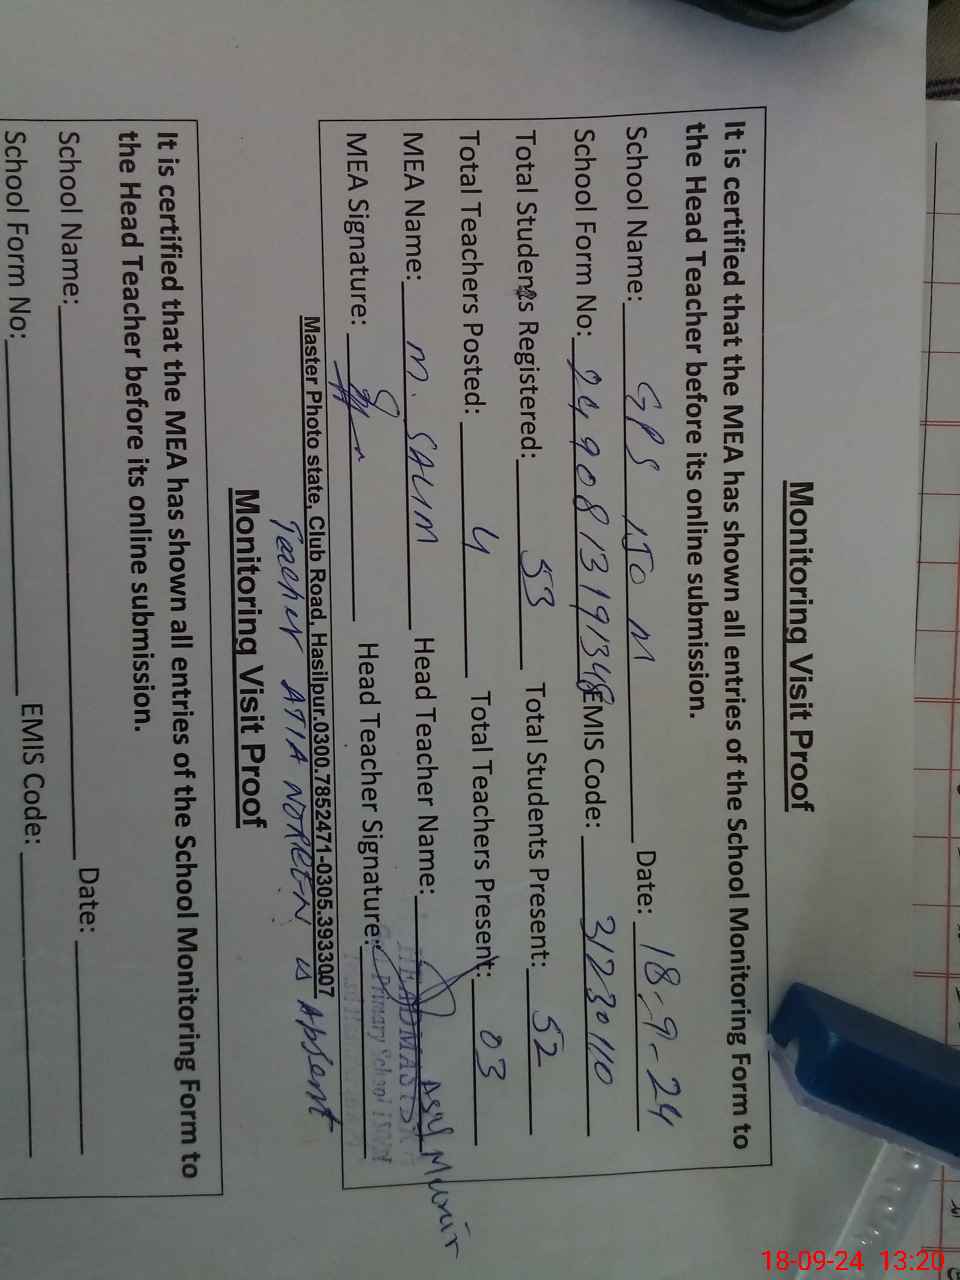 Monitoring Visit Proof
It is certified that the MEA has shown all entries of the School Monitoring Form to
the Head Teacher before its online submission.
School Name: GPS 1JO M Date: 18-9-24
School Form No: 2490813191348 EMIS Code: 31230110
Total Students Registered: 53 Total Students Present: 52
Total Teachers Posted: 4 Total Teachers Present: 03
MEA Name: M. SALIM Head Teacher Name: Asif Munir
HEADMASTER
MEA Signature: Head Teacher Signature:
Primary School
Master Photo state, Club Road, Hasilpur.0300.7852471-0305.3933007
Teacher ATIA NOREEN is Absent
Monitoring Visit Proof
It is certified that the MEA has shown all entries of the School Monitoring Form to
the Head Teacher before its online submission.
School Name: Date:
School Form No: EMIS Code:
18-09-24 13:20